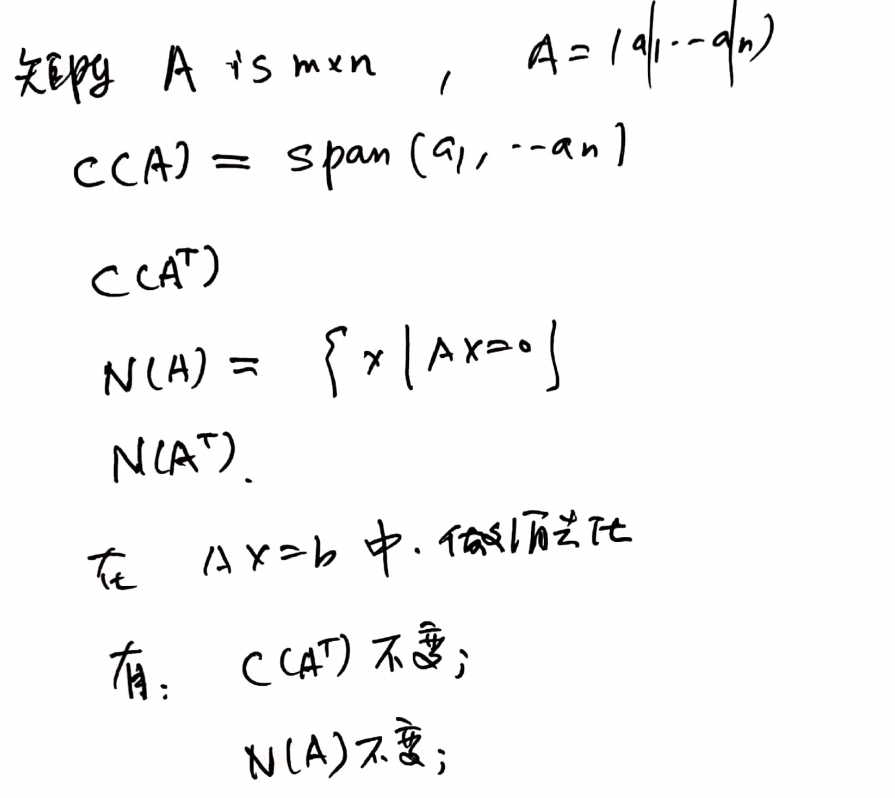 矩阵 A is m×n , A = (a₁|...a|n)
C(A) = span(a₁, ...an)
C(Aᵀ)
N(A) = {x | Ax=0}
N(Aᵀ).
在 Ax=b 中.
有: C(Aᵀ) 不变;
N(A) 不变;